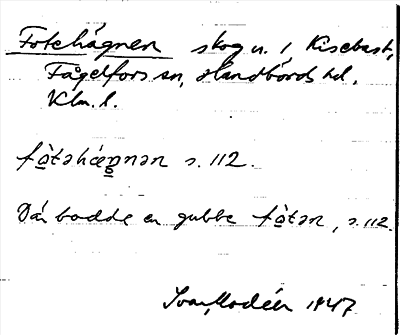 Fotehägnen skog n. i Kisebast,
Fågelfors sn, Handbörds hd.
Klm. l.
fòtəhæŋnən s. 112.
Där bodde en gubbe fòtən, s. 112.
Ivar Modéer 1947